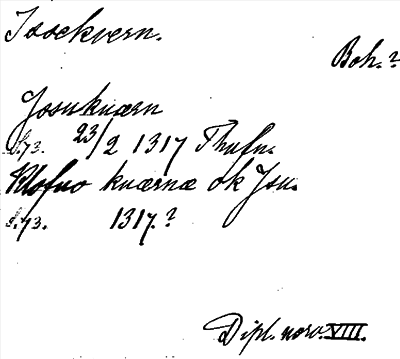 Issekvern.
Boh.?
Josukuærn
S.73. 23/2 1317 Thufn.
Klofuo kuærnæ ok Jsu.
S.73. 1317.?
Dipl. norv. VIII.